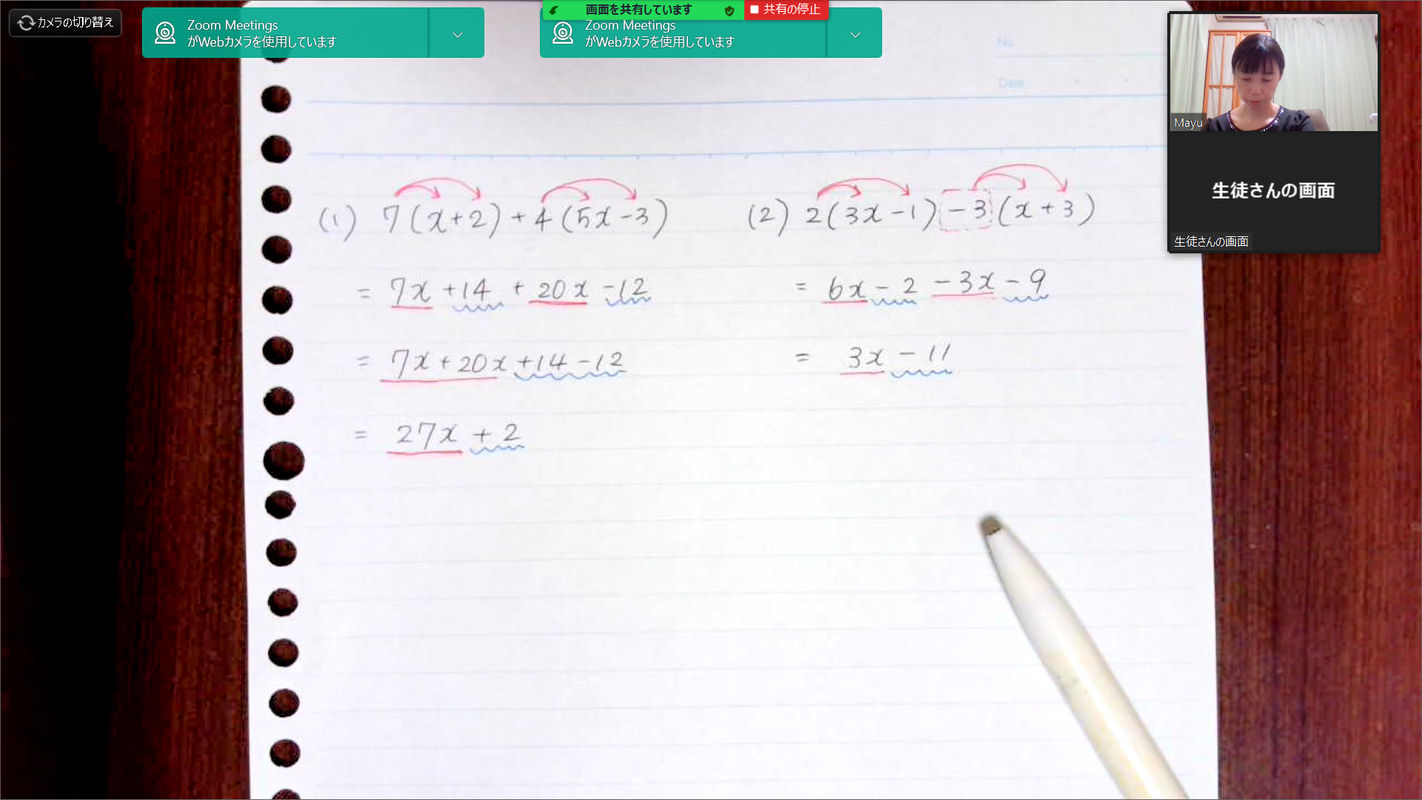 カメラの切り替え
Zoom Meetings
がWebカメラを使用しています
画面を共有しています
共有の停止
Zoom Meetings
がWebカメラを使用しています
No.
Date
Mayu
生徒さんの画面
生徒さんの画面
(1) 7(x+2)+4(5x-3)
= 7x +14 + 20x -12
= 7x+20x+14-12
= 27x + 2
(2) 2(3x-1)-3(x+3)
= 6x - 2 - 3x - 9
= 3x - 11